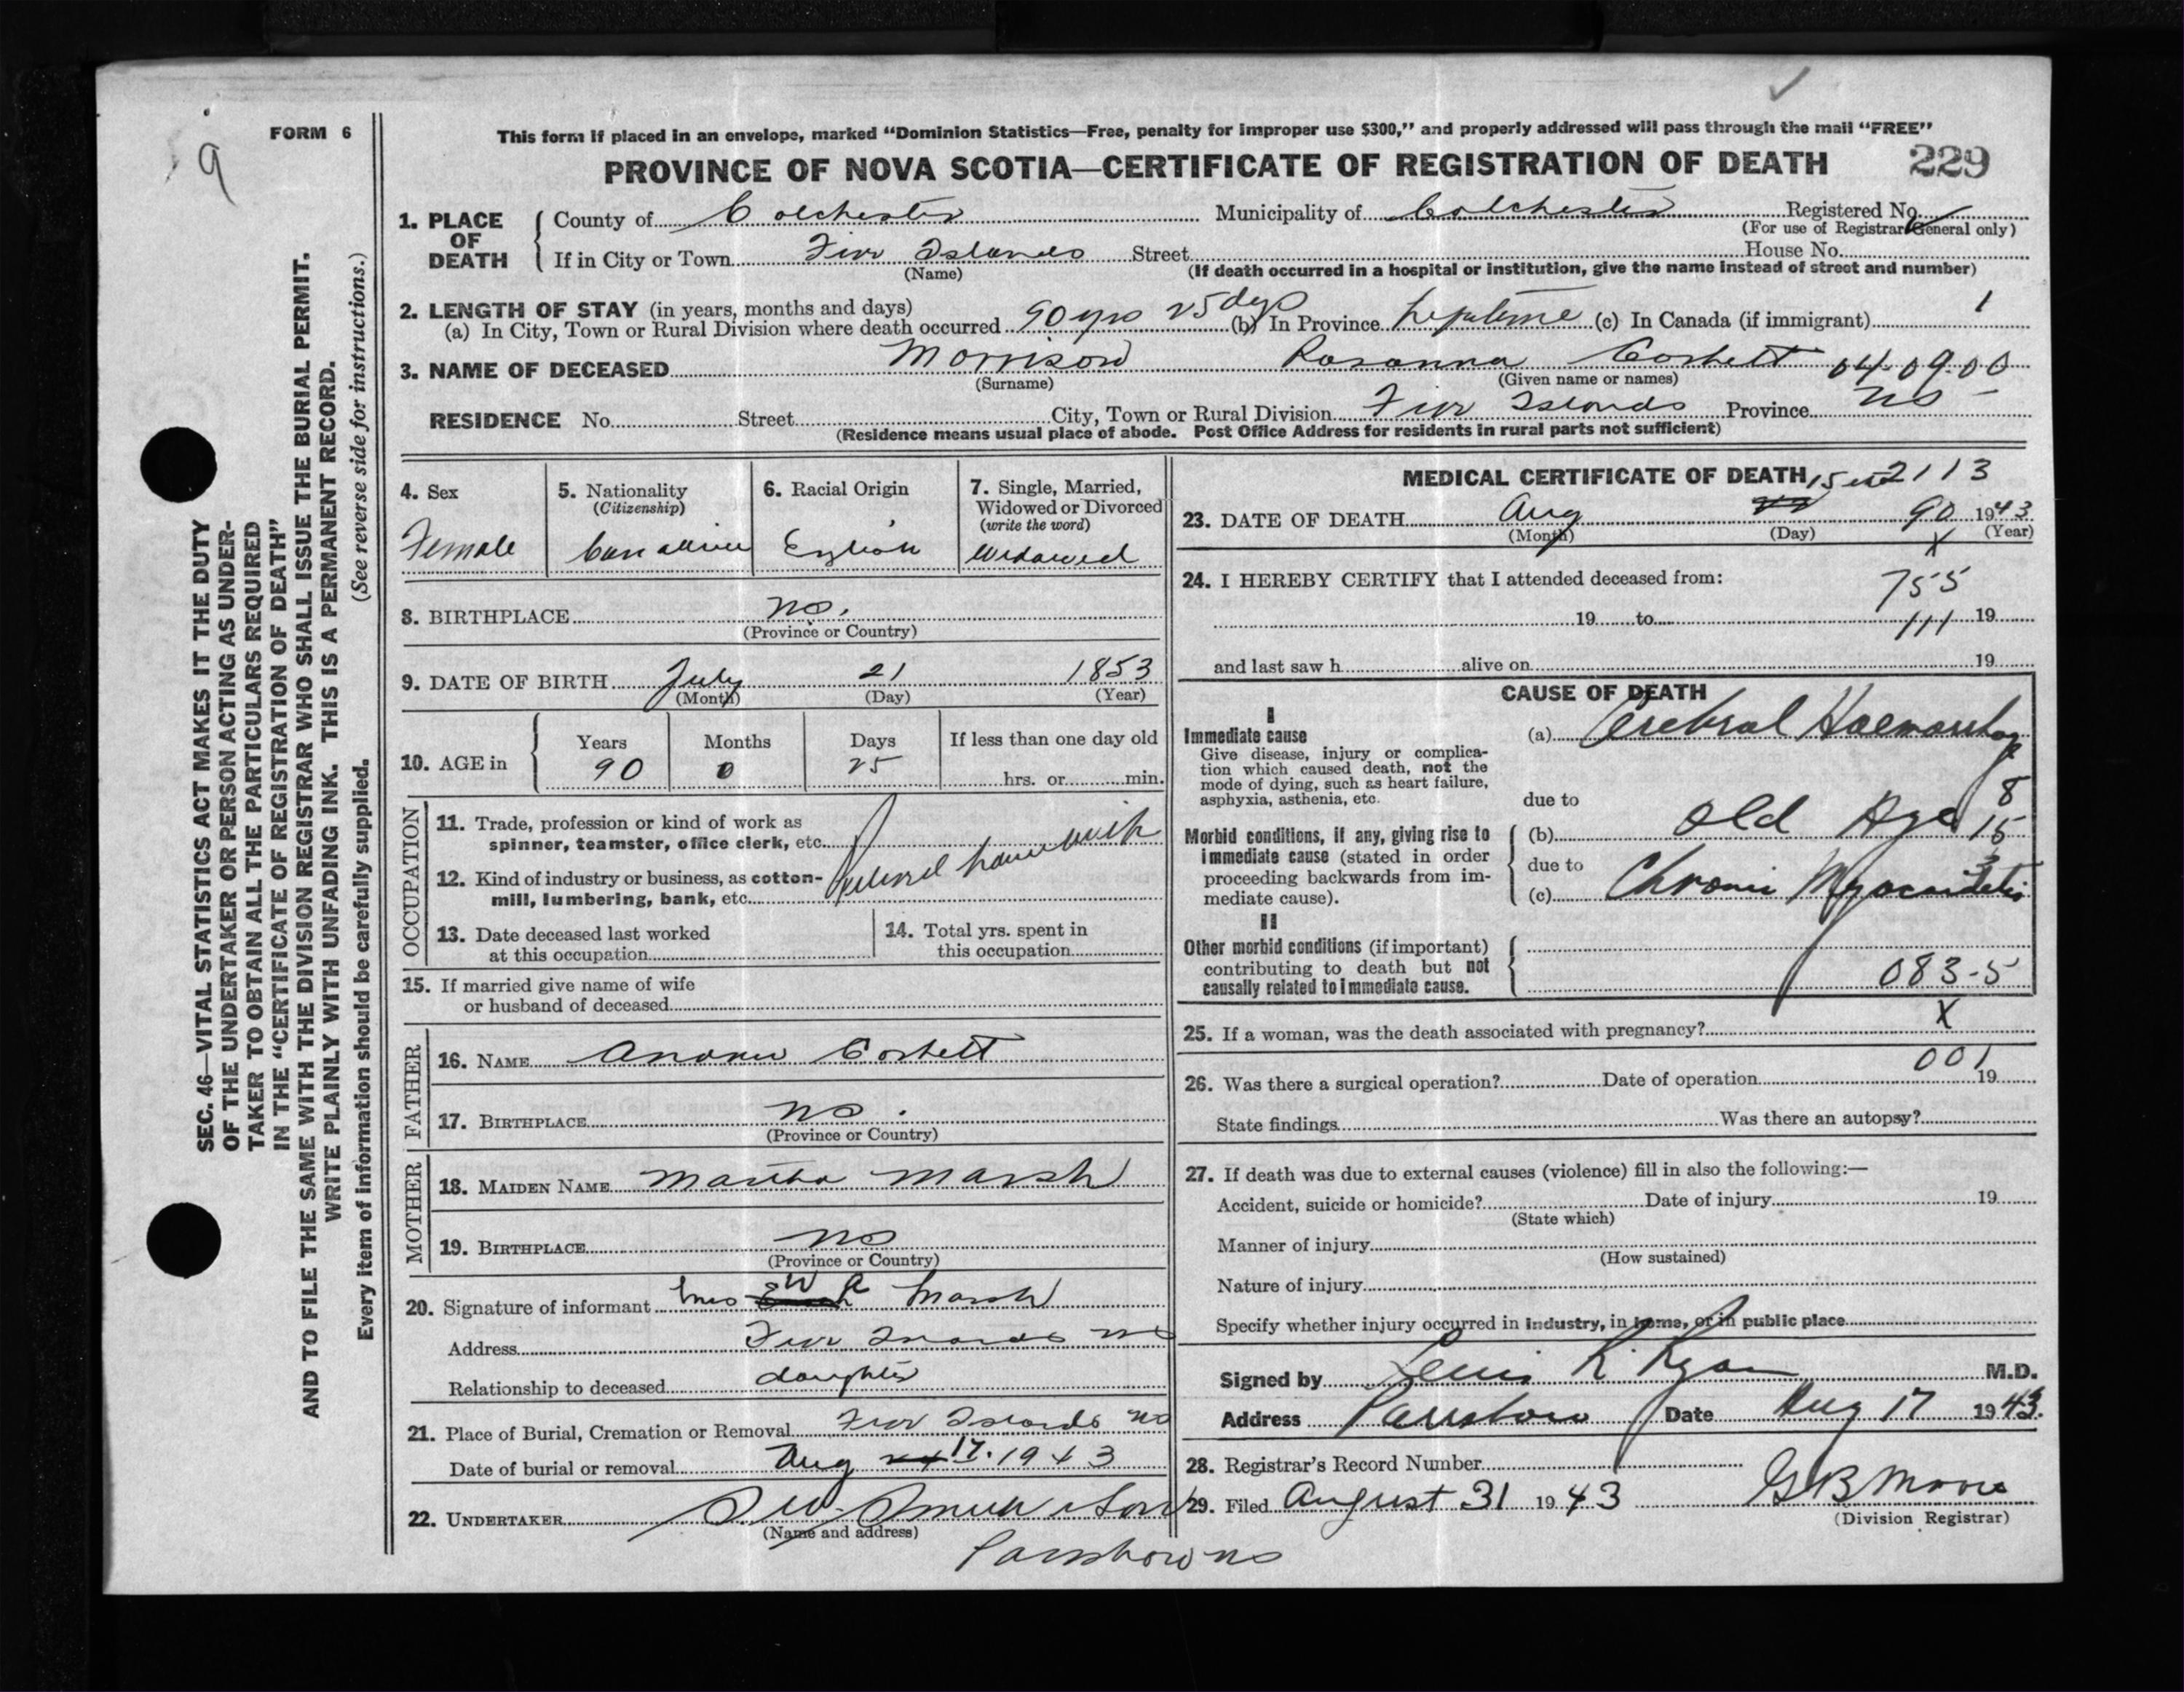 9
FORM 6
SEC. 46—VITAL STATISTICS ACT MAKES IT THE DUTY
OF THE UNDERTAKER OR PERSON ACTING AS UNDER-
TAKER TO OBTAIN ALL THE PARTICULARS REQUIRED
IN THE “CERTIFICATE OF REGISTRATION OF DEATH”
AND TO FILE THE SAME WITH THE DIVISION REGISTRAR WHO SHALL ISSUE THE BURIAL PERMIT.
WRITE PLAINLY WITH UNFADING INK. THIS IS A PERMANENT RECORD.
Every item of information should be carefully supplied. (See reverse side for instructions.)
This form if placed in an envelope, marked “Dominion Statistics—Free, penalty for improper use $300,” and properly addressed will pass through the mail “FREE”
PROVINCE OF NOVA SCOTIA—CERTIFICATE OF REGISTRATION OF DEATH 229
1. PLACE OF DEATH
County of Colchester Municipality of Colchester Registered No.
(For use of Registrar General only)
If in City or Town Five Islands Street House No.
(Name) (If death occurred in a hospital or institution, give the name instead of street and number)
2. LENGTH OF STAY (in years, months and days)
(a) In City, Town or Rural Division where death occurred 90 yrs 25 dys (b) In Province lifetime (c) In Canada (if immigrant) 1
3. NAME OF DECEASED Morrison Rosanna Corbett 04-09-00
(Surname) (Given name or names)
RESIDENCE No. Street City, Town or Rural Division Five Islands Province NS
(Residence means usual place of abode. Post Office Address for residents in rural parts not sufficient)
4. Sex
Female
5. Nationality
(Citizenship)
Canadian
6. Racial Origin
English
7. Single, Married,
Widowed or Divorced
(write the word)
Widowed
8. BIRTHPLACE NS.
(Province or Country)
9. DATE OF BIRTH July 21 1853
(Month) (Day) (Year)
10. AGE in
Years Months Days If less than one day old
90 0 25 hrs. or min.
OCCUPATION
11. Trade, profession or kind of work as
spinner, teamster, office clerk, etc.
12. Kind of industry or business, as cotton-
mill, lumbering, bank, etc. housework
13. Date deceased last worked
at this occupation
14. Total yrs. spent in
this occupation
15. If married give name of wife
or husband of deceased
FATHER
16. NAME Andrew Corbett
17. BIRTHPLACE NS.
(Province or Country)
MOTHER
18. MAIDEN NAME Martha Marsh
19. BIRTHPLACE NS
(Province or Country)
20. Signature of informant Mrs W A Marsh
Address Five Islands NS
Relationship to deceased daughter
21. Place of Burial, Cremation or Removal Five Islands NS
Date of burial or removal Aug 17. 1943
22. UNDERTAKER Smith & Son
(Name and address)
Parrsboro NS
MEDICAL CERTIFICATE OF DEATH 15 2113
23. DATE OF DEATH Aug 90 1943
(Month) (Day) (Year)
X
24. I HEREBY CERTIFY that I attended deceased from:
755
19 to 111 19
and last saw h alive on 19
CAUSE OF DEATH
I
Immediate cause
Give disease, injury or complica-
tion which caused death, not the
mode of dying, such as heart failure,
asphyxia, asthenia, etc.
(a) Cerebral Haemorrhage
due to 8
Morbid conditions, if any, giving rise to
immediate cause (stated in order
proceeding backwards from im-
mediate cause).
(b) Old Age 15
due to
(c) Chronic Myocarditis
II
Other morbid conditions (if important)
contributing to death but not
causally related to immediate cause.
083-5
25. If a woman, was the death associated with pregnancy? X
001
26. Was there a surgical operation? Date of operation 19
State findings Was there an autopsy?
27. If death was due to external causes (violence) fill in also the following:—
Accident, suicide or homicide? Date of injury 19
(State which)
Manner of injury
(How sustained)
Nature of injury
Specify whether injury occurred in industry, in home, or in public place
Signed by R. Ryan M.D.
Address Parrsboro Date Aug 17 1943.
28. Registrar’s Record Number
29. Filed August 31 1943 G B Moore
(Division Registrar)